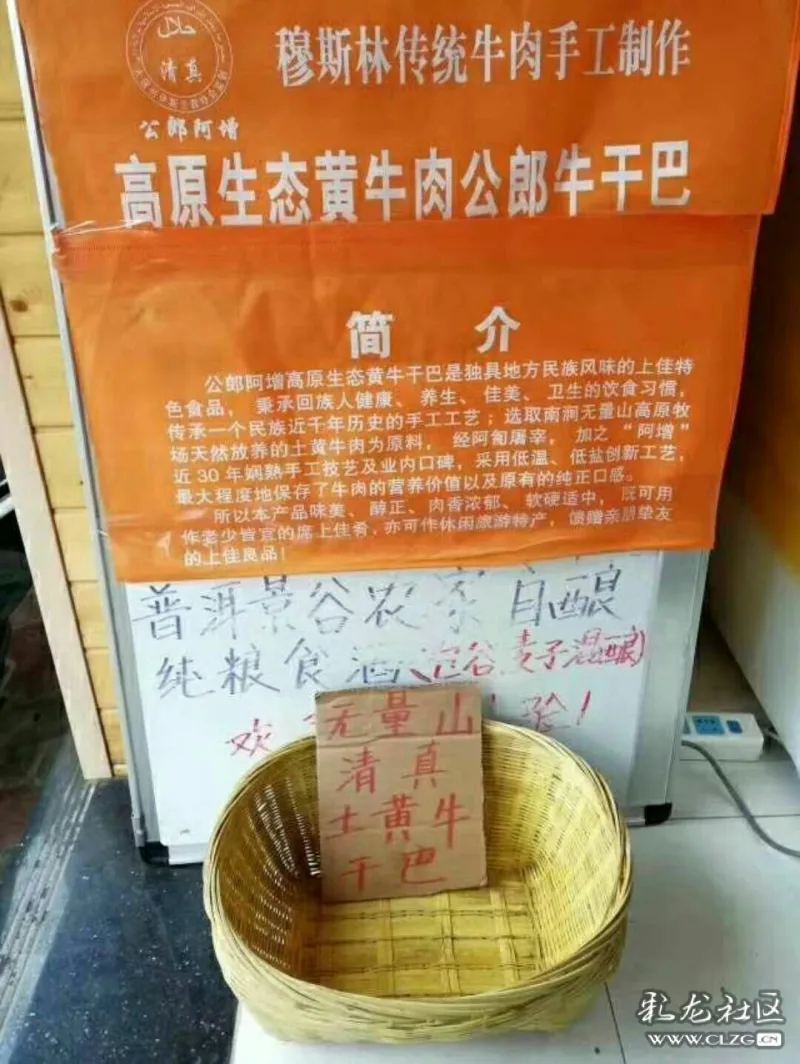 حلال
清真
穆斯林传统牛肉手工制作
公郎阿增
高原生态黄牛肉公郎牛干巴
简 介
公郎阿增高原生态黄牛干巴是独具地方民族风味的上佳特
色食品，秉承回族人健康、养生、佳美、卫生的饮食习惯，
传承一个民族近千年历史的手工工艺；选取南涧无量山高原牧
场天然放养的土黄牛肉为原料，经阿訇屠宰，加之“阿增”
近30年娴熟手工技艺及业内口碑，采用低温、低盐创新工艺，
最大程度地保存了牛肉的营养价值以及原有的纯正口感。
所以本产品味美、醇正、肉香浓郁、软硬适中，既可用
作老少皆宜的席上佳肴，亦可作休闲旅游特产，馈赠亲朋挚友
的上佳良品！
普洱景谷农家自酿
纯粮食酒(泡谷麦子混酿)
欢 验！
无量山
清真
土黄牛
干巴
彩龙社区
WWW.CLZG.CN